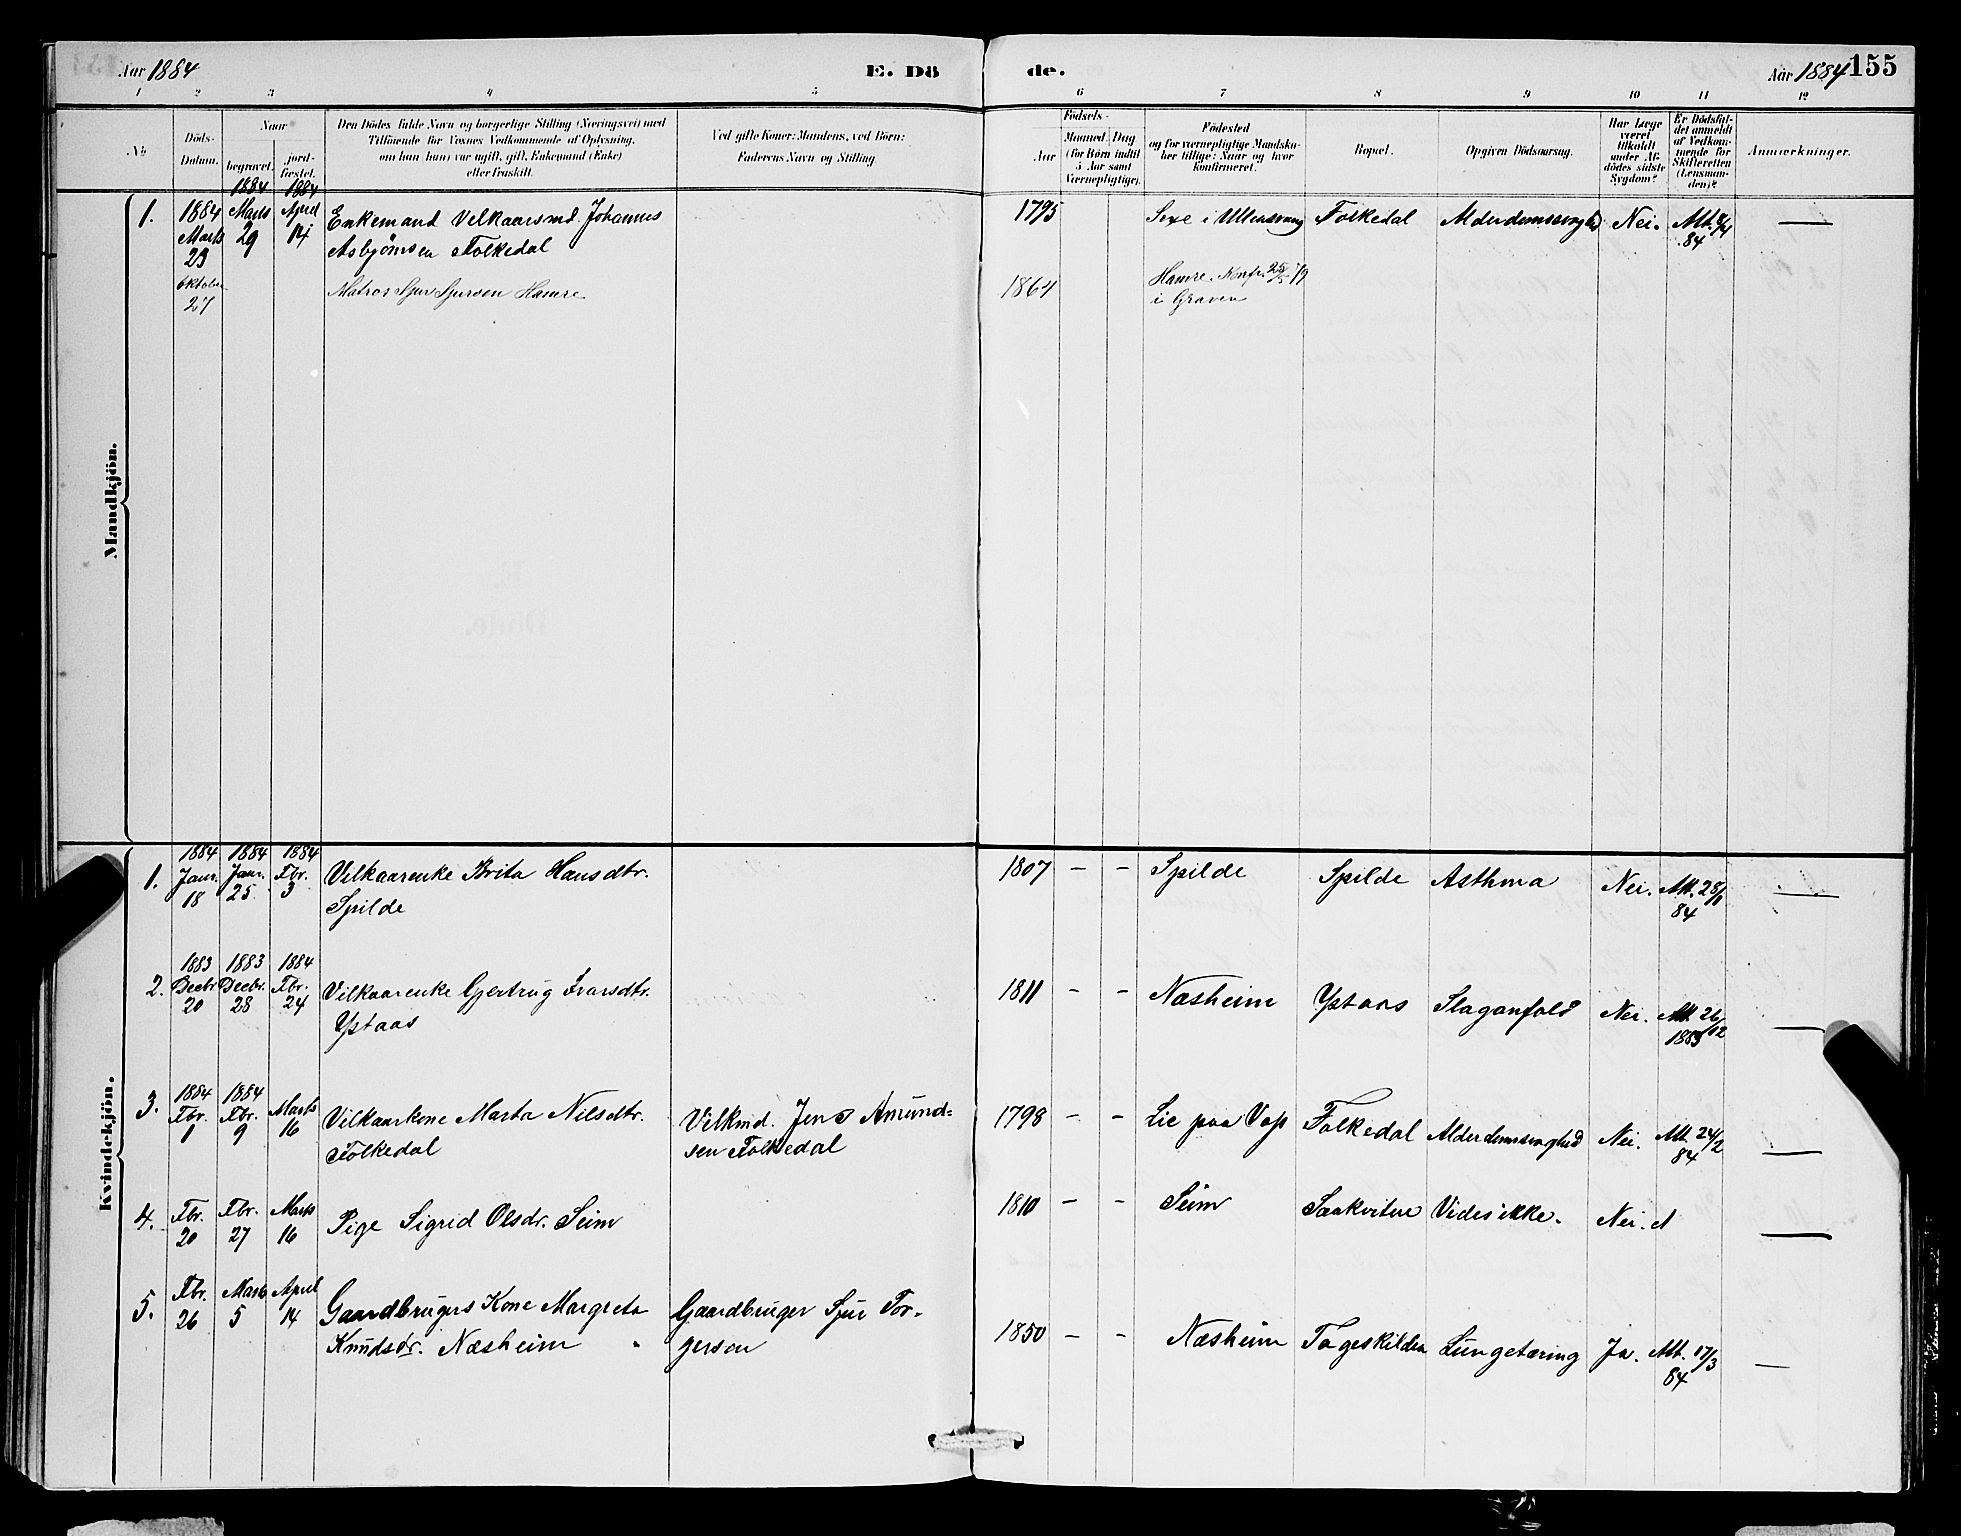 Aar 1884
E. Dö
de.
Aar 1884
155
1 2 3 4 5 6 7 8 9 10 11 12
No
Döds-
Datum.
Naar
begravet.
jord-
fæstet.
Den Dödes fulde Navn og borgerlige Stilling (Næringsvei) med
Tilföiende for Voxnes Vedkommende af Oplysning,
om han (hun) var ugift, gift, Enkemand (Enke)
eller fraskilt.
Ved gifte Koner: Mandens, ved Börn:
Faderens Navn og Stilling
Fødsels-
Aar
Maaned. Dag
(for Börn indtil
5 Aar samt
Værnepligtige).
Födested
og for værnepligtige Mandsku-
ber tillige: Naar og hvor
konfirmeret.
Bopæl.
Opgiven Dödsaarsag.
Har Læge
været
tilkaldt
under Af-
dödes sidste
Sygdom?
Er Dödsfal-
det anmeldt
af Vedkom-
mende for
Skifteretten
(Lensman-
den)?
Anmærkninger.
Mandkjön.
1884 1884
1. 1884 Marts April Enkemand Velkaarsmd. Johannes 1795 Sexe i Ullensvang Folkedal Alderdomssvaghed Nei. Att. 8/4
Marts 29 14 Asbjørnsen Folkedal 84
23
Oktober Matros Sjur Sjursen Hamre 1864 Hamre. Konfr. 25/5 79
27 i Graven
Kvindekjön.
1884 1884 1884
1. Janr. Janr. Fbr. Vilkaarenke Brita Hansdtr. 1807 — — Spilde Spilde Asthma Nei. Att. 28/1
18 25 3 Spilde 84
1883 1883 1884
2. Decbr Decbr. Fbr. Vilkaarenke Gjertrug Ivarsdtr. 1811 - - Næsheim Ystaas Slaganfald Nei. Att 26/12
20 28 24 Ystaas 1883
1884 1884
3. Fbr. Fbr. Marts Vilkaarkone Marta Nilsdtr. Vilkmd. Jens Amund= 1798 - - Lie paa Vos Folkedal Alderdomssvaghed Nei. Att. 24/2
1 9 16 Folkedal sen Folkedal 84
4. Fbr. Fbr. Marts Pige Sigrid Olsdr. Seim 1810 - - Seim Saakvitne Vides ikke. Nei. A
20 27 16
5. Fbr. Marts April Gaardbrugers Kone Margreta Gaardbruger Sjur Tor- 1850 - - Næsheim Tageskilden Lungetæring Ja. Att. 17/3
26 5 14 Knudsdr. Næsheim gersen 84